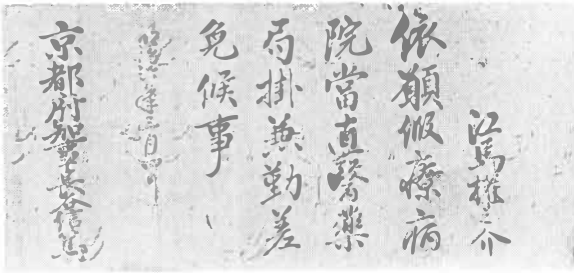 江馬権之介
依願仮療病
院當直醫藥
局掛兼勤差
免候事
京都府知事長谷信篤